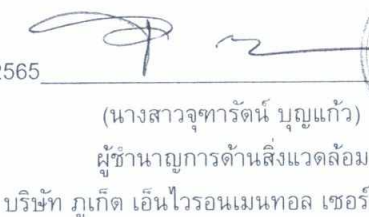 2565
(นางสาวจุฑารัตน์ บุญแก้ว)
ผู้ชำนาญการด้านสิ่งแวดล้อม
บริษัท ภูเก็ต เอ็นไวรอนเมนทอล เซอร์